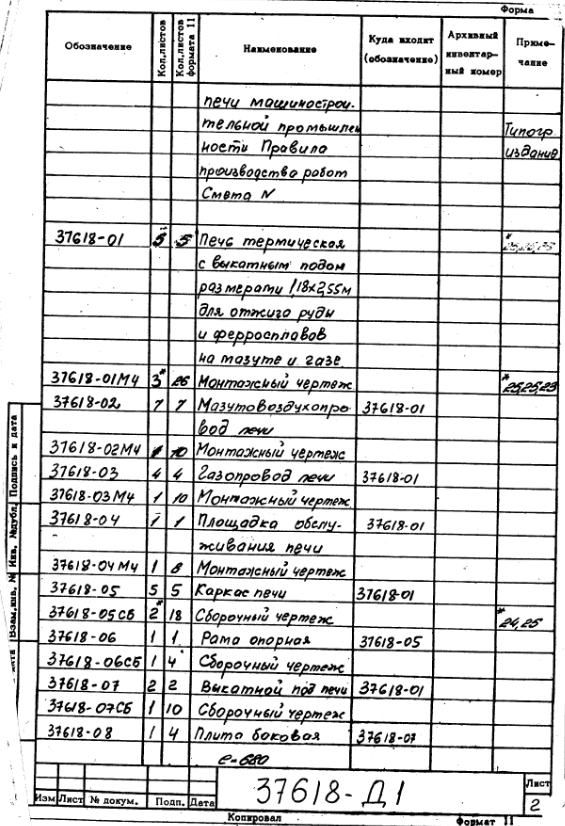 Форма
Обозначение Кол.листов Кол.листов формата 11 Наименование Куда входит (обозначение) Архивный инвентарный номер Примечание
печи машинострои-
тельной промышлен Типогр
ности Правила издание
производства работ
Смета N
37618-01 5 5 Печь термическая *
с выкатным подом
размерами 1,18х2,55м
для отжига руды
и ферросплавов
на мазуте и газе
37618-01М4 3* 26 Монтажный чертеж *25,25,23
37618-02 7 7 Мазутовоздухопро 37618-01
вод печи
37618-02М4 1 10 Монтажный чертеж
37618-03 4 4 Газопровод печи 37618-01
37618-03М4 1 10 Монтажный чертеж
37618-04 1 1 Площадка обслу- 37618-01
живания печи
37618-04М4 1 8 Монтажный чертеж
37618-05 5 5 Каркас печи 37618-01
37618-05СБ 2* 18 Сборочный чертеж *24,25
37618-06 1 1 Рама опорная 37618-05
37618-06СБ 1 4 Сборочный чертеж
37618-07 2 2 Выкатной под печи 37618-01
37618-07СБ 1 10 Сборочный чертеж
37618-08 1 4 Плита боковая 37618-07
е-680
37618-Д1
Лист
2
Изм Лист № докум. Подп. Дата
Копировал Формат 11
Взам.инв. № Инв. №дубл. Подпись и дата